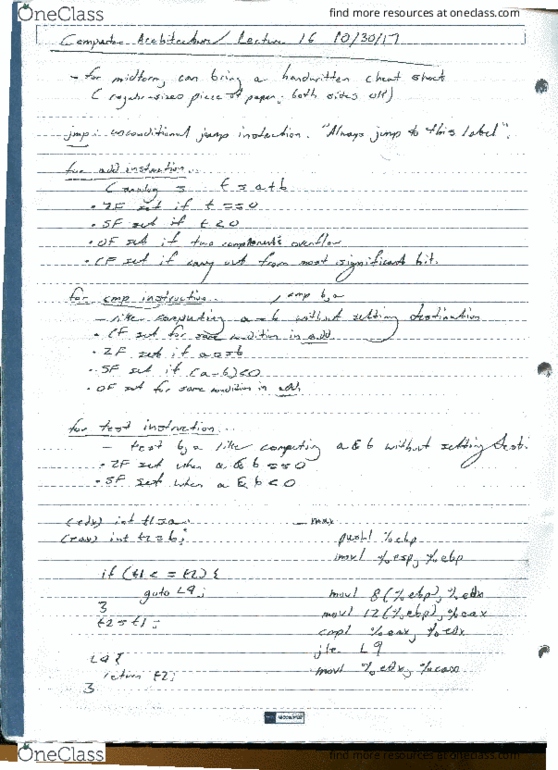 OneClass
find more resources at oneclass.com
Computer Architecture Lecture 16 10/30/17
- for midterm, can bring a handwritten cheat sheet
( regular-sized piece of paper; both sides ok!)
jmp: unconditional jump instruction. "Always jump to this label".
for add instruction...
C analog t = a+b
• ZF set if t == 0
• SF set if t < 0
• OF set if two complements overflow
• CF set if carry out from most significant bit.
for cmp instruction... cmp b,a
- like computing a-b without setting destination
• CF set for same condition in add.
• ZF set if a==b
• SF set if (a-b)<0
• OF set for same condition in add.
for test instruction...
- test b,a like computing a & b without setting dest.
• ZF set when a & b == 0
• SF set when a & b < 0
(edx) int t1=a;
(eax) int t2=b;
if (t1 <= t2) {
goto L9;
}
t2=t1;
L9 {
return t2;
}
max
pushl %ebp
movl %esp, %ebp
movl 8(%ebp), %edx
movl 12(%ebp), %eax
cmpl %eax, %edx
jle L9
movl %edx, %eax
OneClass
find more resources at oneclass.com